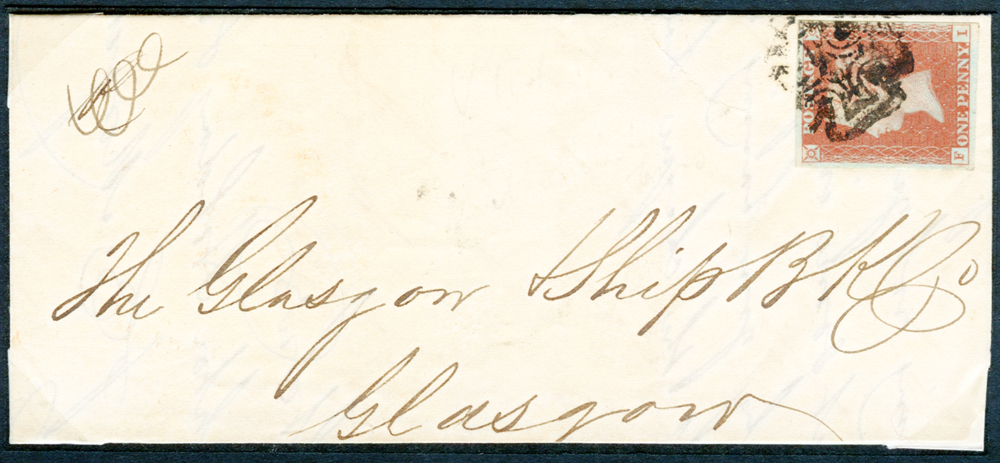 POSTAGE
ONE PENNY
F I
The Glasgow Ship B K Co
Glasgow